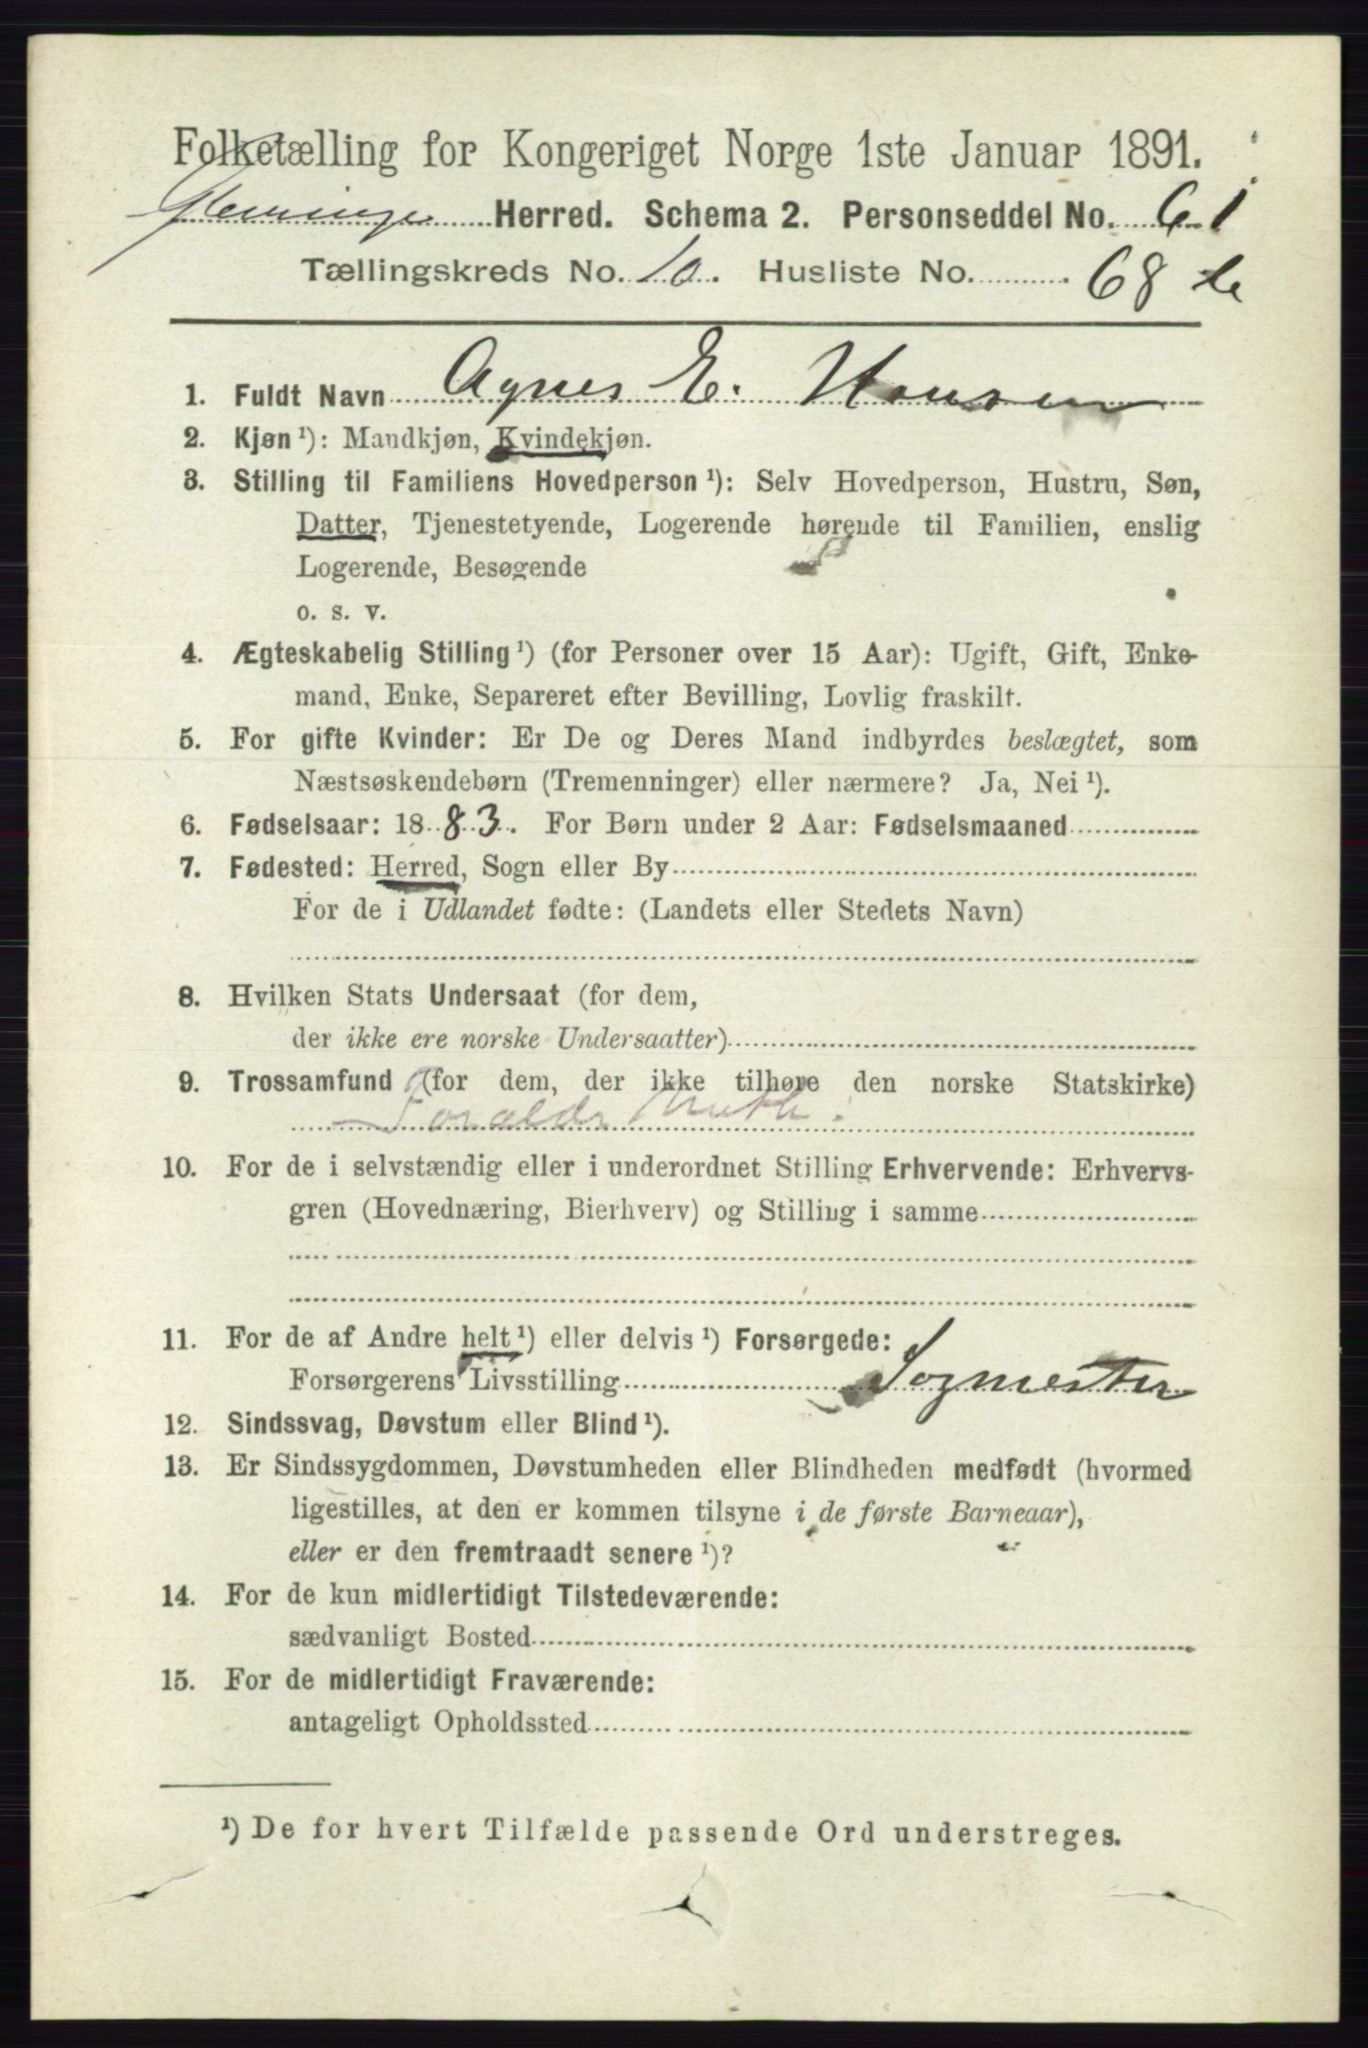 Folketælling for Kongeriget Norge 1ste Januar 1891.
Glemminge Herred. Schema 2. Personseddel No. 61
Tællingskreds No. 10. Husliste No. 68
1. Fuldt Navn Agnes E. Hansen
2. Kjøn ¹): Mandkjøn, Kvindekjøn.
3. Stilling til Familiens Hovedperson ¹): Selv Hovedperson, Hustru, Søn,
Datter, Tjenestetyende, Logerende hørende til Familien, enslig
Logerende, Besøgende
o. s. v.
4. Ægteskabelig Stilling ¹) (for Personer over 15 Aar): Ugift, Gift, Enke-
mand, Enke, Separeret efter Bevilling, Lovlig fraskilt.
5. For gifte Kvinder: Er De og Deres Mand indbyrdes beslægtet, som
Næstsøskendebørn (Tremenninger) eller nærmere? Ja, Nei ¹).
6. Fødselsaar: 1883. For Børn under 2 Aar: Fødselsmaaned
7. Fødested: Herred, Sogn eller By
For de i Udlandet fødte: (Landets eller Stedets Navn)
8. Hvilken Stats Undersaat (for dem,
der ikke ere norske Undersaatter)
9. Trossamfund (for dem, der ikke tilhøre den norske Statskirke)
Forældr Meth.
10. For de i selvstændig eller i underordnet Stilling Erhvervende: Erhvervs-
gren (Hovednæring, Bierhverv) og Stilling i samme
11. For de af Andre helt ¹) eller delvis ¹) Forsørgede:
Forsørgerens Livsstilling Sagmester
12. Sindssvag, Døvstum eller Blind ¹).
13. Er Sindssygdommen, Døvstumheden eller Blindheden medfødt (hvormed
ligestilles, at den er kommen tilsyne i de første Barneaar),
eller er den fremtraadt senere ¹)?
14. For de kun midlertidigt Tilstedeværende:
sædvanligt Bosted
15. For de midlertidigt Fraværende:
antageligt Opholdssted
¹) De for hvert Tilfælde passende Ord understreges.